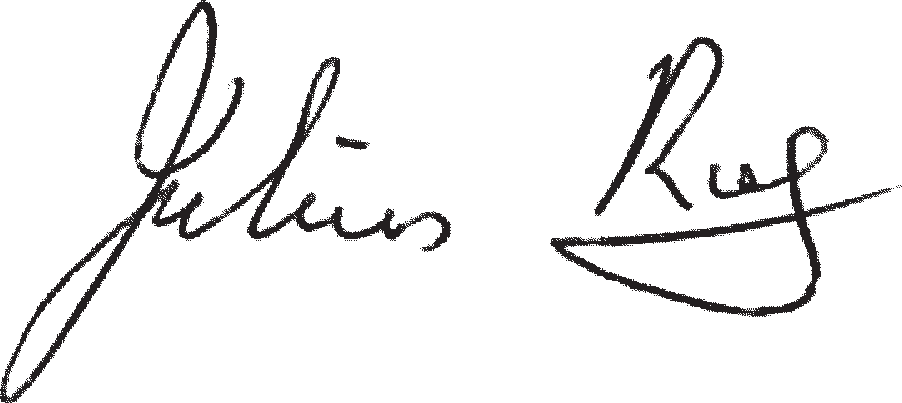 Julius Rug